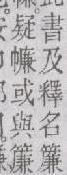 此書及釋名簾
㡘疑㡘或與簾